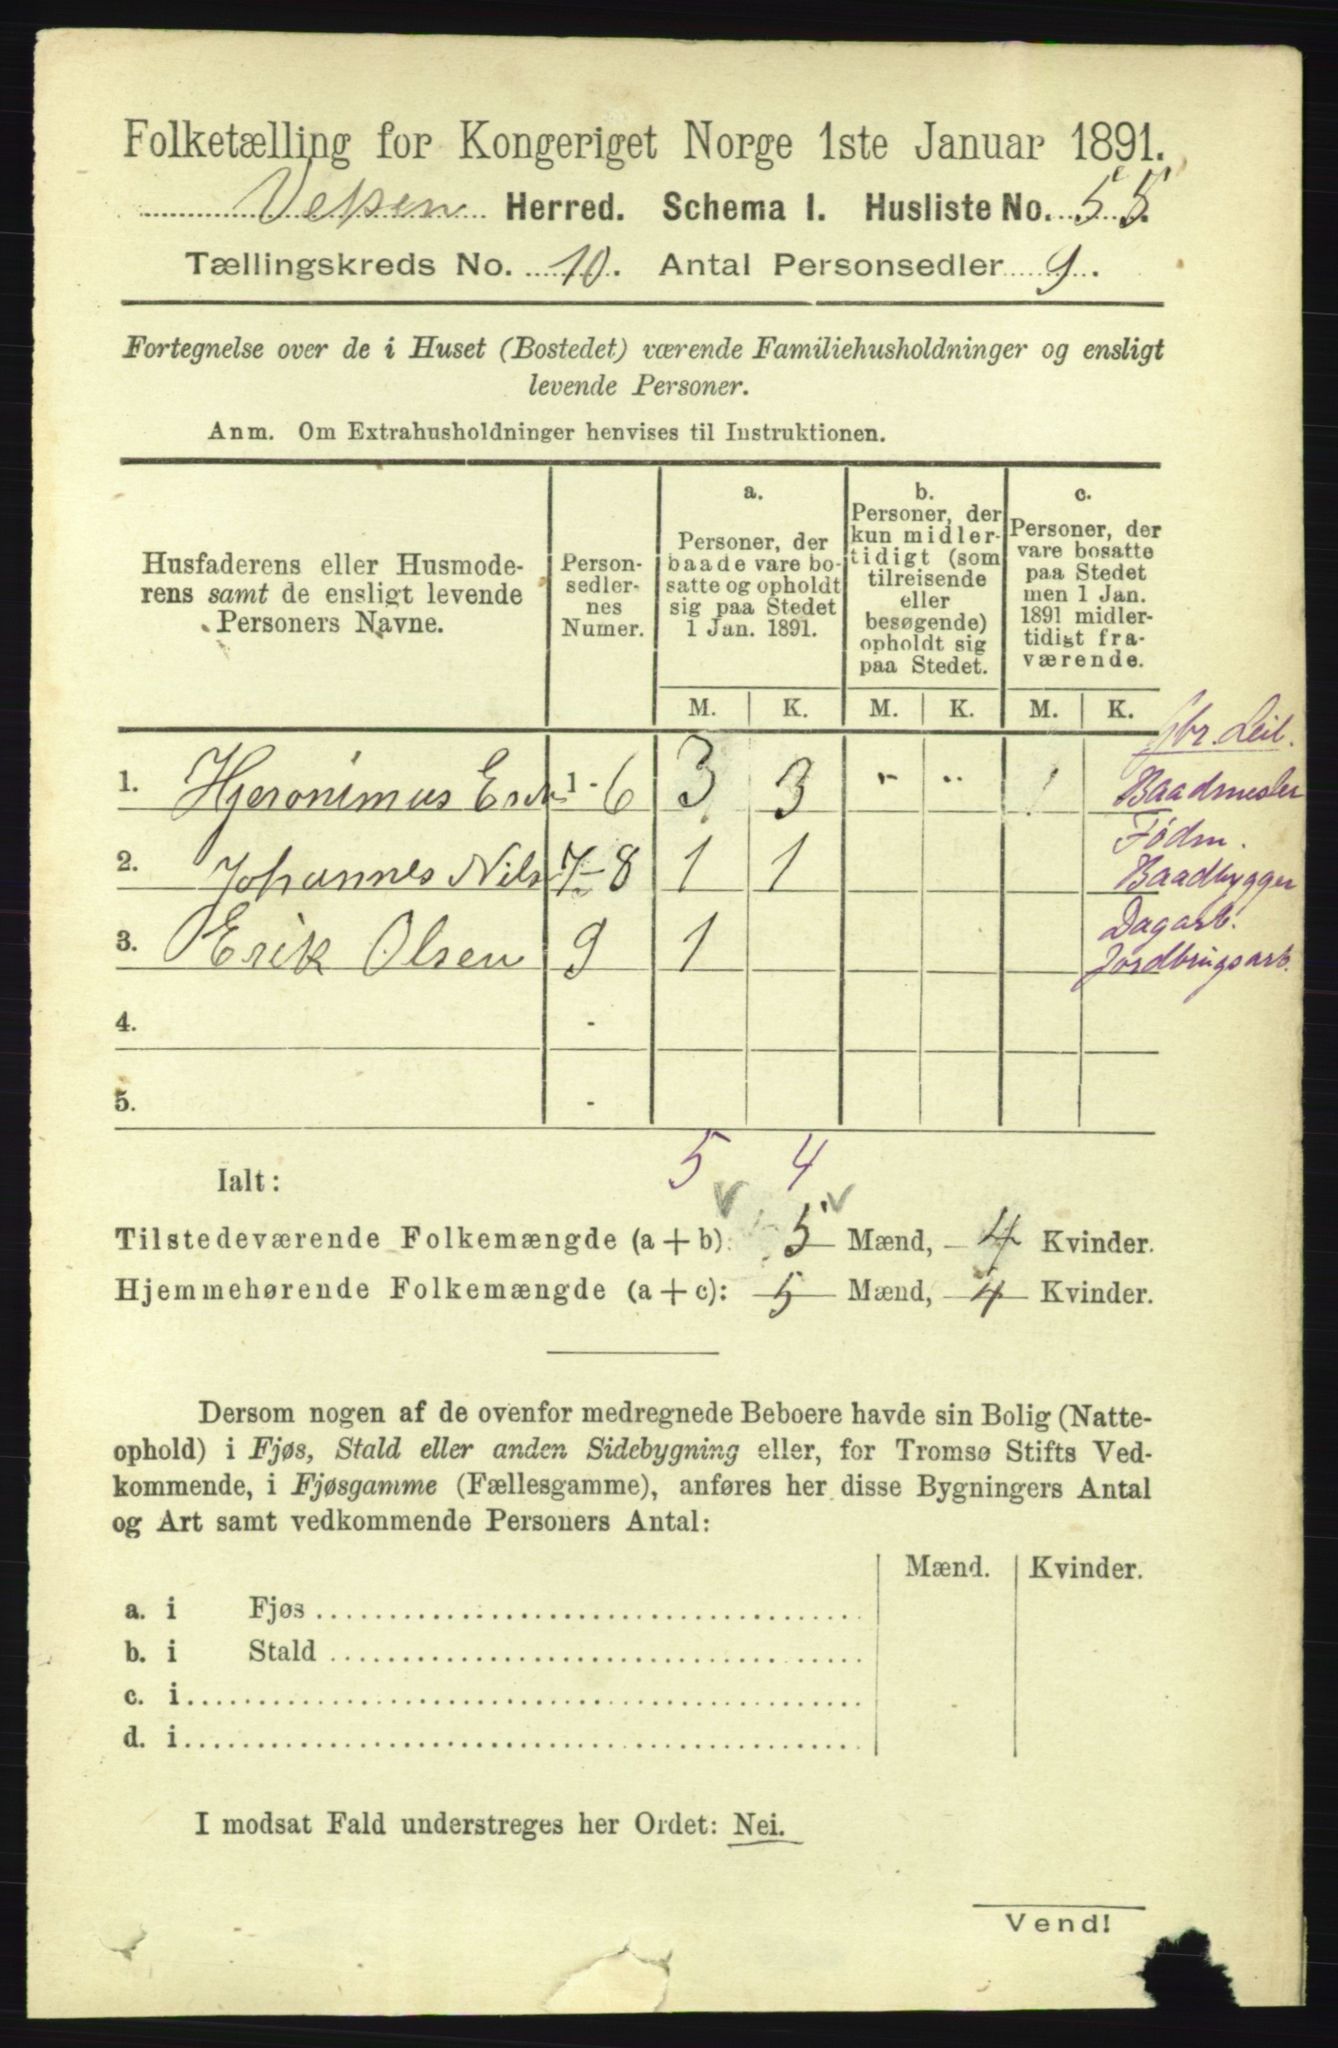 Folketælling for Kongeriget Norge 1ste Januar 1891.
Vefsen Herred. Schema I. Husliste No. 55.
Tællingskreds No. 10. Antal Personsedler 9.
Fortegnelse over de i Huset (Bostedet) værende Familiehusholdninger og ensligt
levende Personer.
Anm. Om Extrahusholdninger henvises til Instruktionen.
Husfaderens eller Husmode-
rens samt de ensligt levende
Personers Navne.
Person-
sedler-
nes
Numer.
a.
Personer, der
baade vare bo-
satte og opholdt
sig paa Stedet
1 Jan. 1891.
b.
Personer, der
kun midler-
tidigt (som
tilreisende
eller
besøgende)
opholdt sig
paa Stedet.
c.
Personer, der
vare bosatte
paa Stedet
men 1 Jan.
1891 midler-
tidigt fra-
værende.
M. K. M. K. M. K.
Gbr. Leil.
1. Hjeronimus 1-6 3 3 Baadmester
Fødm.
2. Johannes Nils 7-8 1 1 Baadbygger
Dagarb.
3. Erik Olsen 9 1 Jordbrugsarb.
4. -
5. -
Ialt: 5 4
Tilstedeværende Folkemængde (a+b): 5 Mænd, 4 Kvinder.
Hjemmehørende Folkemængde (a+c): 5 Mænd, 4 Kvinder.
Dersom nogen af de ovenfor medregnede Beboere havde sin Bolig (Natte-
ophold) i Fjøs, Stald eller anden Sidebygning eller, for Tromsø Stifts Ved-
kommende, i Fjøsgamme (Fællesgamme), anføres her disse Bygningers Antal
og Art samt vedkommende Personers Antal:
Mænd. Kvinder.
a. i Fjøs
b. i Stald
c. i
d. i
I modsat Fald understreges her Ordet: Nei.
Vend!